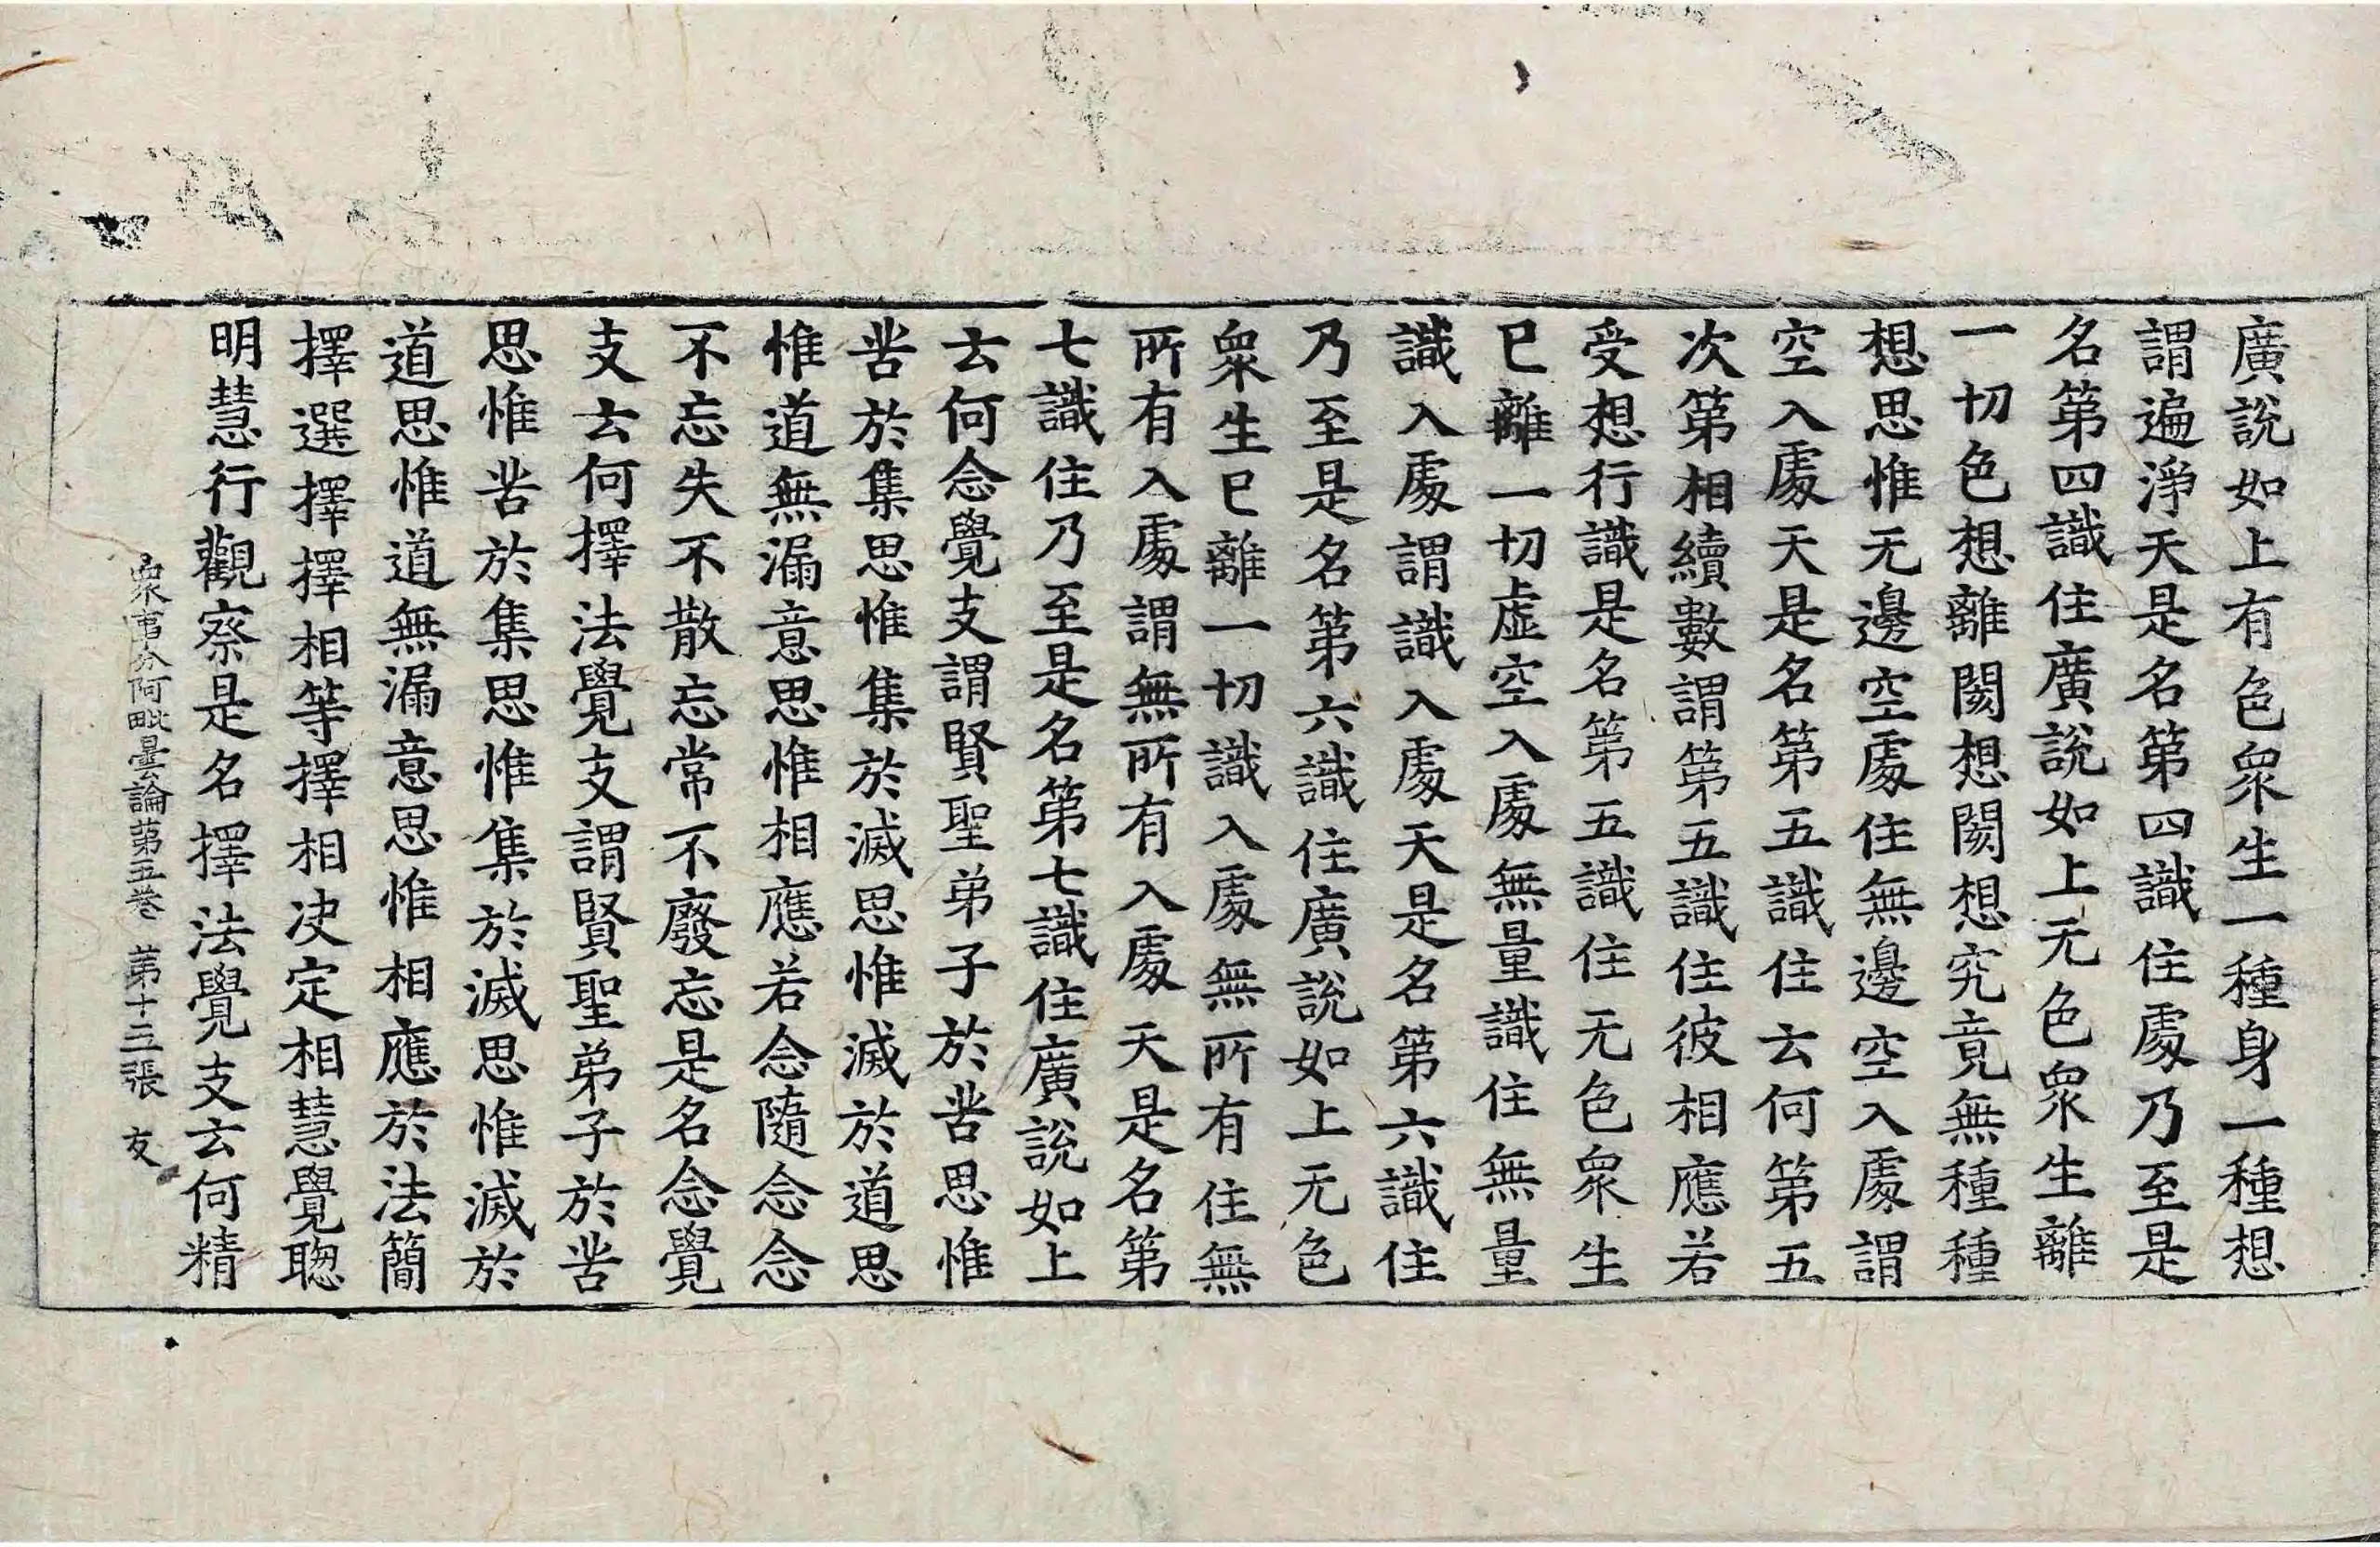 廣說如上有色衆生一種身一種想
謂遍淨天是名第四識住處乃至是
名第四識住廣說如上无色衆生離
一切色想離閡想閡想究竟無種種
想思惟无邊空處住無邊空入處謂
空入處天是名第五識住云何第五
次第相續數謂第五識住彼相應若
受想行識是名第五識住无色衆生
已離一切虛空入處無量識住無量
識入處謂識入處天是名第六識住
乃至是名第六識住廣說如上无色
衆生已離一切識入處無所有住無
所有入處謂無所有入處天是名第
七識住乃至是名第七識住廣說如上
云何念覺支謂賢聖弟子於苦思惟
苦於集思惟集於滅思惟滅於道思
惟道無漏意思惟相應若念隨念念
不忘失不散忘常不廢忘是名念覺
支云何擇法覺支謂賢聖弟子於苦
思惟苦於集思惟集於滅思惟滅於
道思惟道無漏意思惟相應於法簡
擇選擇擇相等擇相决定相慧覺聦
明慧行觀察是名擇法覺支云何精
衆事分阿毗曇論第五卷 第十三張 友